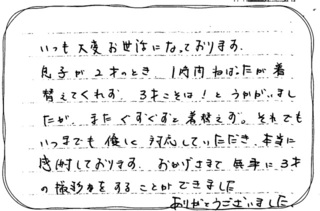 いつも大変お世話になっております。
息子が2才のとき、1時間ねばったが着
替えてくれず、3才こそは!とうかがいまし
たが、またぐずぐずと着替えず。それでも
いつまでも優しく対応していただき、本当に
感謝しております。おかげさまで無事に3才
の撮影をすることができました
ありがとうございました